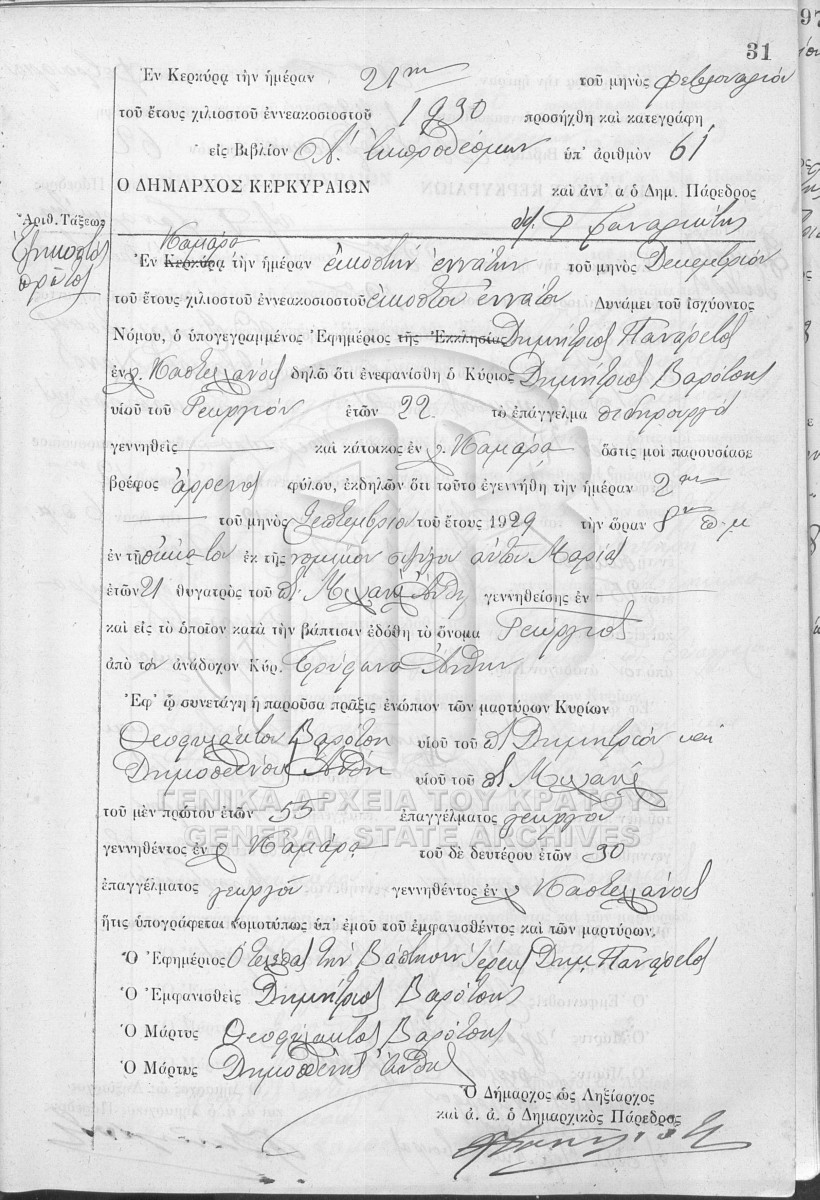 31
Ἐν Κερκύρᾳ τὴν ἡμέραν 21ην τοῦ μηνὸς Φεβρουαρίου
τοῦ ἔτους χιλιοστοῦ ἐννεακοσιοστοῦ 1930 προσήχθη καὶ κατεγράφη
εἰς Βιβλίον Α. ἐκπροθέσμων ὑπ' ἀριθμὸν 61
Ο ΔΗΜΑΡΧΟΣ ΚΕΡΚΥΡΑΙΩΝ καὶ ἀντ' α ὁ Δημ. Πάρεδρος
Ἀριθ. Τάξεως
ἑξηκοστὸς
πρῶτος
Καμάρα
Ἐν Κερκύρᾳ τὴν ἡμέραν εἰκοστὴν ἐννάτην τοῦ μηνὸς Δεκεμβρίου
τοῦ ἔτους χιλιοστοῦ ἐννεακοσιοστοῦ εἰκοστοῦ ἐννάτου Δυνάμει τοῦ ἰσχύοντος
Νόμου, ὁ ὑπογεγραμμένος Ἐφημέριος τῆς Ἐκκλησίας Δημήτριος Παναρέτος
ἐν χ. Καστελλάνοις δηλῶ ὅτι ἐνεφανίσθη ὁ Κύριος Δημήτριος Βαρότσης
υἱοῦ τοῦ Γεωργίου ἐτῶν 22 τὸ ἐπάγγελμα σιδηρουργὸς
γεννηθεὶς καὶ κάτοικος ἐν χ. Καμάρα ὅστις μοὶ παρουσίασε
βρέφος ἄρρενος φύλου, ἐκδηλῶν ὅτι τοῦτο ἐγεννήθη τὴν ἡμέραν 2αν
τοῦ μηνὸς Σεπτεμβρίου τοῦ ἔτους 1929 τὴν ὥραν 8ην π.μ
ἐν τῇ οἰκίᾳ του ἐκ τῆς νομίμου συζύγου αὐτοῦ Μαρίας
ἐτῶν 21 θυγατρὸς τοῦ Μιχαὴλ Ἄνθη γεννηθείσης ἐν
καὶ εἰς τὸ ὁποῖον κατὰ τὴν βάπτισιν ἐδόθη τὸ ὄνομα Γεώργιος
ἀπὸ τὸν ἀνάδοχον Κύρ. Τρύφωνα Ἄνθην
Ἐφ' ᾧ συνετάγη ἡ παροῦσα πρᾶξις ἐνώπιον τῶν μαρτύρων Κυρίων
Θεοφυλάκτου Βαρότση υἱοῦ τοῦ Δημητρίου καὶ
Δημοσθένους Ἄνθη υἱοῦ τοῦ Μιχαὴλ
ΓΕΝΙΚΑ ΑΡΧΕΙΑ ΤΟΥ ΚΡΑΤΟΥΣ
τοῦ μὲν πρώτου ἐτῶν 55 ἐπαγγέλματος γεωργοῦ
GENERAL STATE ARCHIVES
γεννηθέντος ἐν χ Καμάρα τοῦ δὲ δευτέρου ἐτῶν 30
ἐπαγγέλματος γεωργοῦ γεννηθέντος ἐν χ Καστελλάνοις
ἥτις ὑπογράφεται νομοτύπως ὑπ' ἐμοῦ τοῦ ἐμφανισθέντος καὶ τῶν μαρτύρων.
Ὁ Ἐφημέριος Ὁ τελέσας τὴν Βάπτισιν Ἱερεὺς Δημ. Παναρετος
Ὁ Ἐμφανισθεὶς Δημήτριος Βαρότσης
Ὁ Μάρτυς Θεοφύλακτος Βαρότσης
Ὁ Μάρτυς Δημοσθένης Ἄνθης
Ὁ Δήμαρχος ὡς Ληξίαρχος
καὶ ἀ. ἀ. ὁ Δημαρχικὸς Πάρεδρος